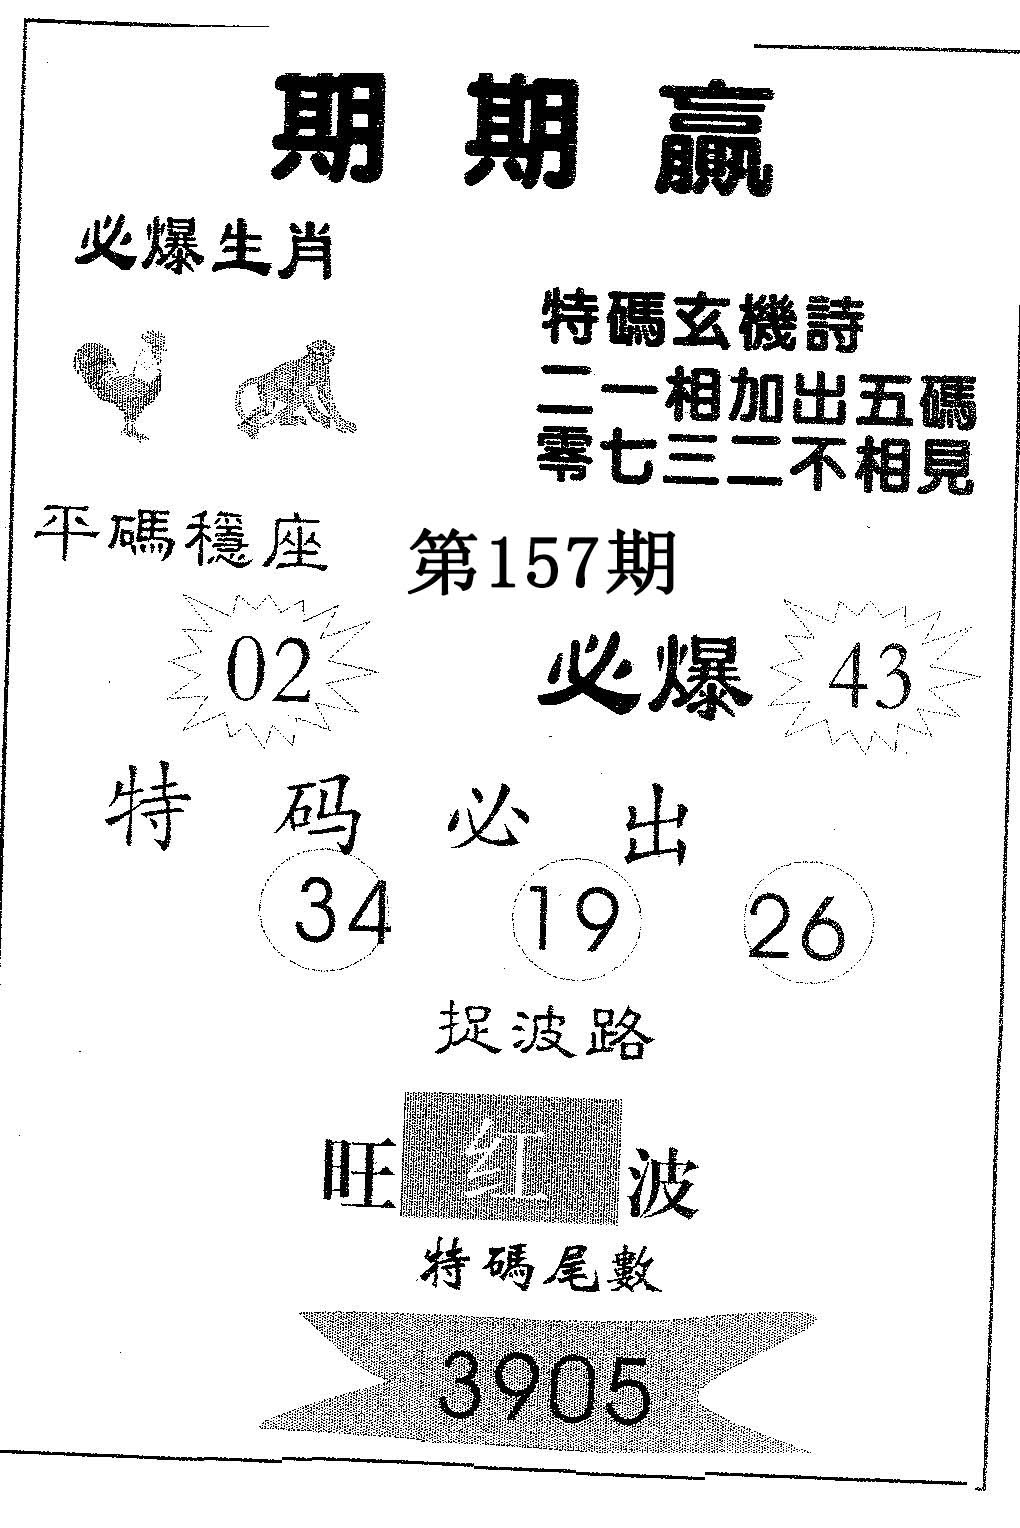 期期赢
必爆生肖
特碼玄機詩
二一相加出五碼
零七三二不相見
平碼穩座
第157期
02
必爆 43
特码必出
34 19 26
捉波路
旺红波
特碼尾數
3905